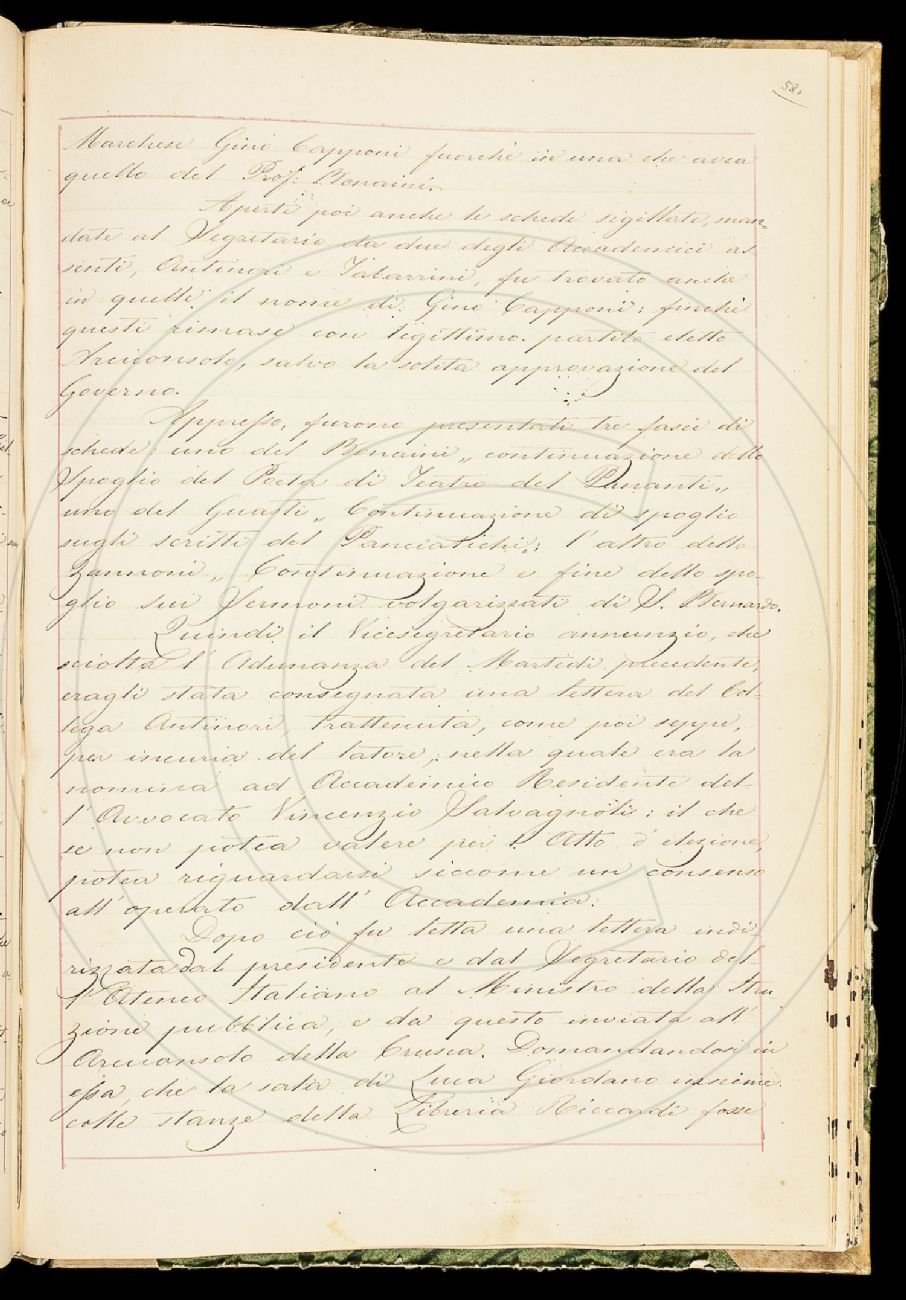 581
Marchese Gino Capponi fuorchè in una che avea
quello del Prof. Bonaini.
Aperte poi anche le schede sigillate, man-
date al Segretario da due degli Accademici as-
senti, Antinori e Tabarrini, fu trovato anche
in quelle il nome di Gino Capponi: finchè
questi rimase con legittimo partito eletto
Arciconsolo, salvo la solita approvazione del
Governo.
Appresso, furono presentati tre fasci di
schede: uno del Bonaini „ continuazione dello
Spoglio del Poeta di Teatro del Pananti „
uno del Guasti „ Continuazione di spoglio
sugli scritti del Panciatichi„; l'altro dello
Zannoni „ Continuazione e fine dello spo-
glio sui Sermoni volgarizzati di S. Bernardo.
Quindi il Vicesegretario annunziò, che
sciolta l'Adunanza del Martedì precedente,
eragli stata consegnata una lettera del Col-
lega Antinori trattenuta, come poi seppe,
per incuria del latore, nella quale era la
nomina ad Accademico Residente del-
l'Avvocato Vincenzio Salvagnoli: il che
se non potea valere per l'Atto d'elezione,
potea riguardarsi siccome un consenso
all'operato dall'Accademia.
Dopo ciò fu letta una lettera indi-
rizzata dal presidente e dal Segretario del-
l'Ateneo Italiano al Ministro della Istru-
zione pubblica, e da questo inviata all'
Arciconsolo della Crusca. Domandandosi in
essa, che la sala di Luca Giordano insieme
colle stanze della Libreria Riccardi fosse